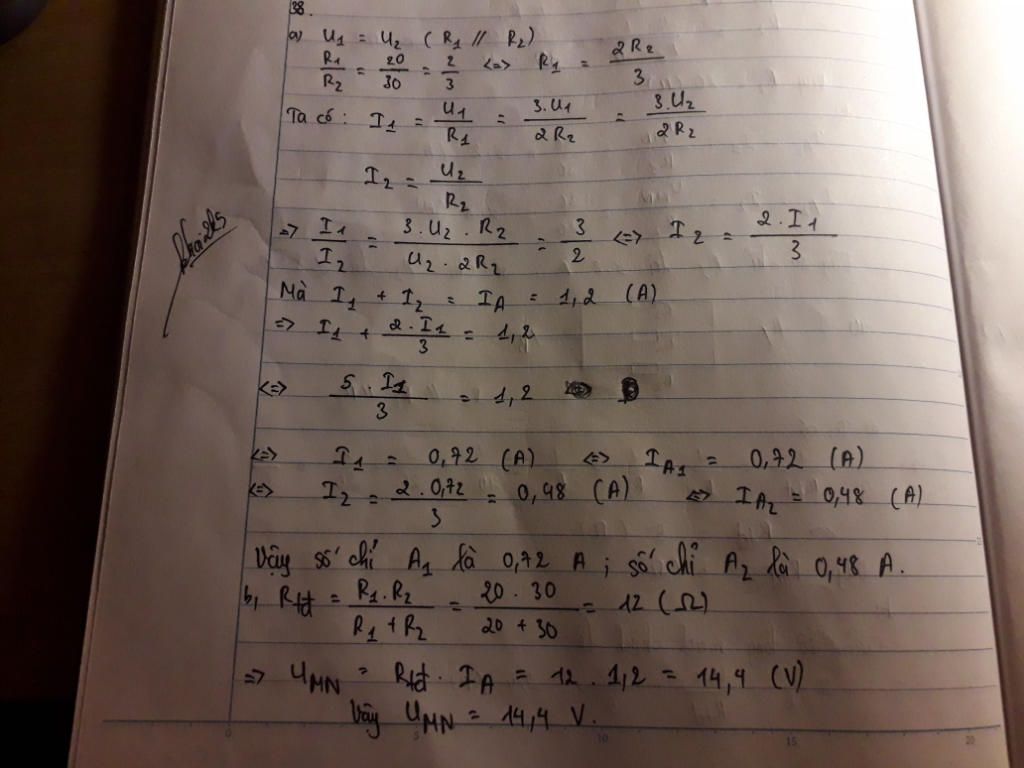 38.
a) U₁ = U₂ ( R₁ // R₂)
R₁/R₂ = 20/30 = 2/3 <=> R₁ = 2R₂/3
Ta có : I₁ = U₁/R₁ = 3.U₁/2R₂ = 3.U₂/2R₂
I₂ = U₂/R₂
=> I₁/I₂ = 3.U₂.R₂/U₂.2R₂ = 3/2 <=> I₂ = 2.I₁/3
Mà I₁ + I₂ = I_A = 1,2 (A)
=> I₁ + 2.I₁/3 = 1,2
<=> 5.I₁/3 = 1,2
<=> I₁ = 0,72 (A) <=> I_A₁ = 0,72 (A)
<=> I₂ = 2.0,72/3 = 0,48 (A) <=> I_A₂ = 0,48 (A)
Vậy số chỉ A₁ là 0,72 A ; số chỉ A₂ là 0,48 A.
b, Rtđ = R₁.R₂/R₁+R₂ = 20.30/20+30 = 12 (Ω)
=> U_MN = Rtđ. I_A = 12 . 1,2 = 14,4 (V)
Vậy U_MN = 14,4 V.
0 5 10 15 20